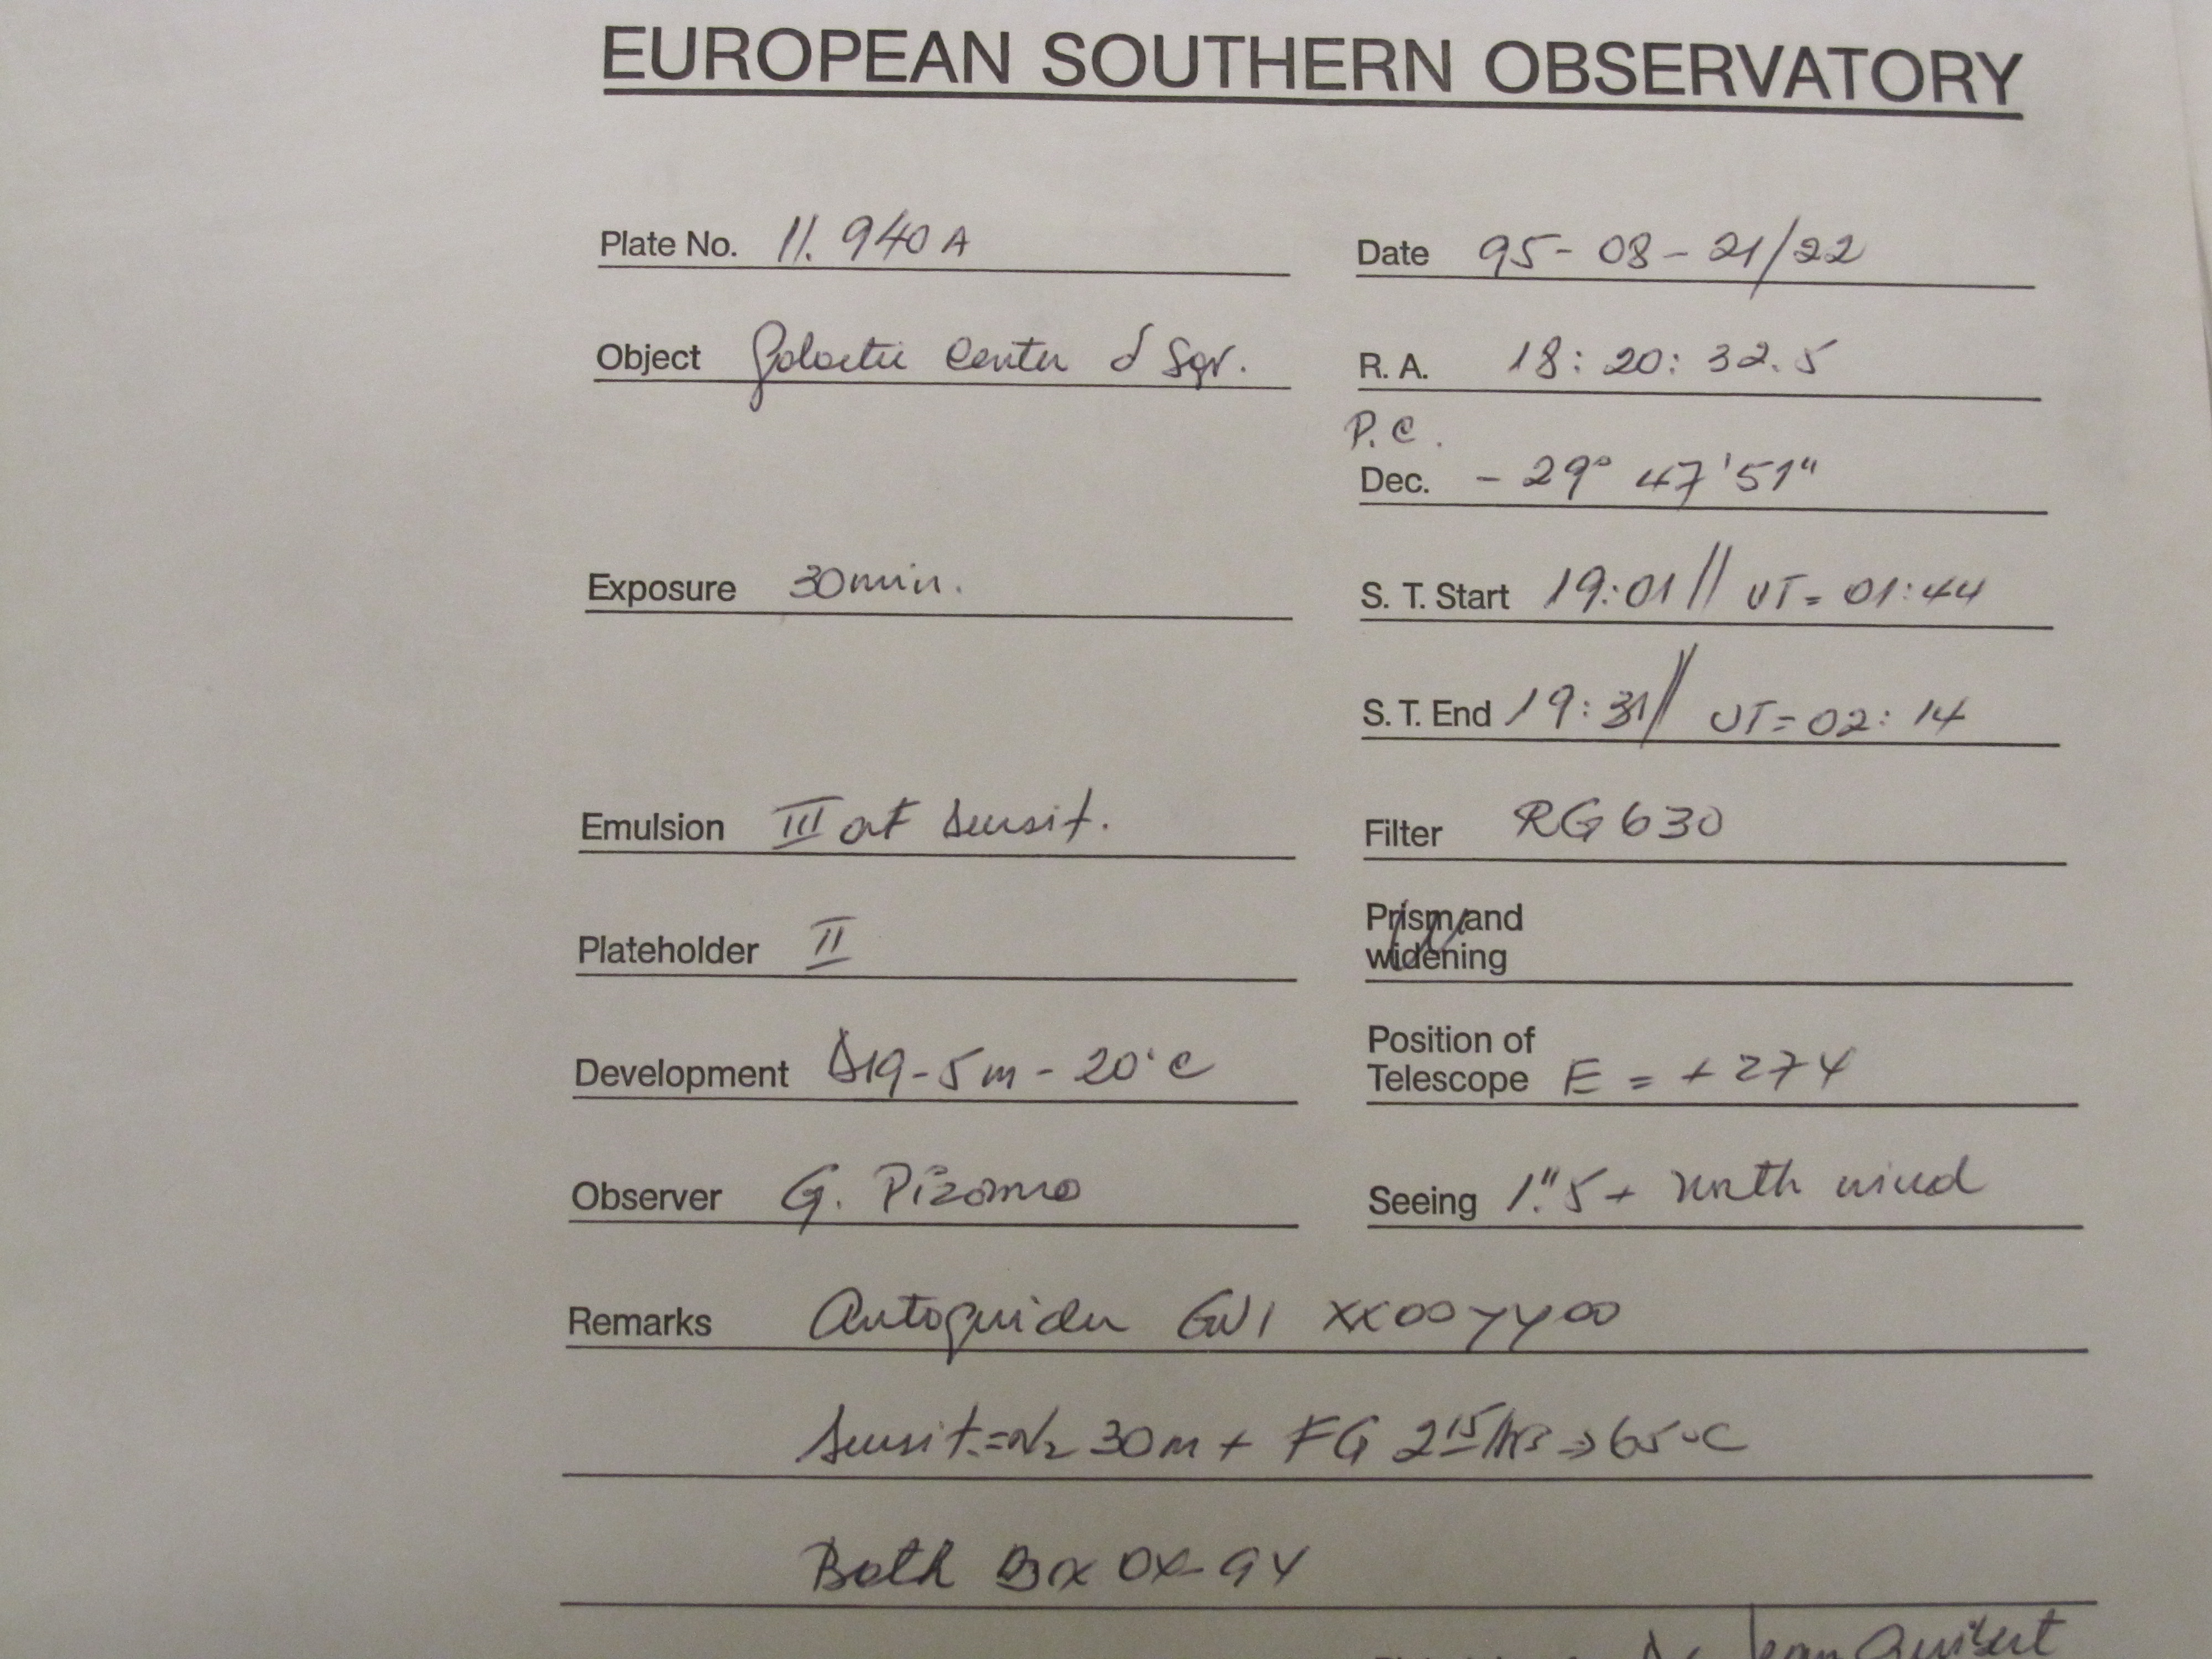 EUROPEAN SOUTHERN OBSERVATORY
Plate No. 11.940 A
Date 95-08-21/22
Object Galactic Center δ Sgr.
R. A. 18: 20: 32.5
P.C.
Dec. - 29° 47' 51"
Exposure 30 min.
S. T. Start 19:01 // UT= 01:44
S. T. End 19:31 // UT= 02:14
Emulsion III aF Sensit.
Filter RG 630
Plateholder II
Prism and
widening
Development D19-5m-20°C
Position of
Telescope E = + 274
Observer G. Pizarro
Seeing 1."5 + north wind
Remarks Autoguider GW1 XX00 YY00
Sensit.=N2 30m + FG 2 15 hrs → 65°C
Both
Jean Guibert